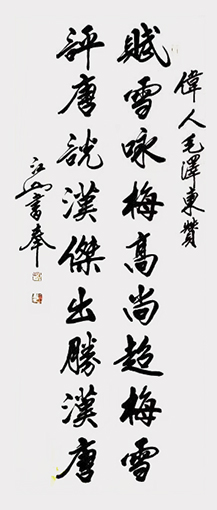 偉人毛澤東贊
賦雪咏梅高尚超梅雪
評唐説漢傑出勝漢唐
江山書奉